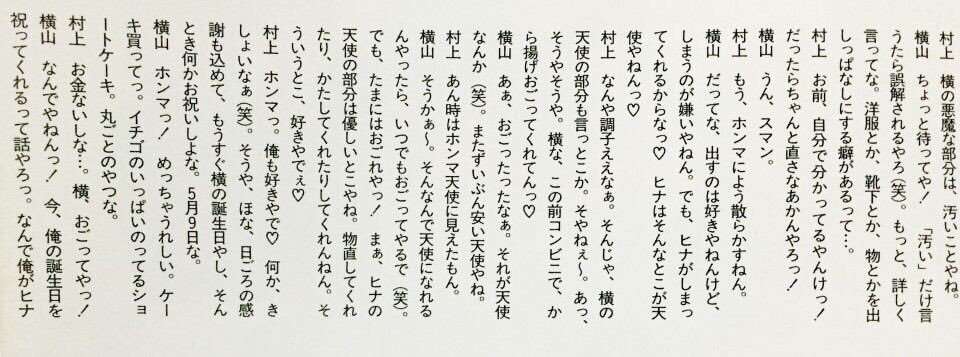 村上　横の悪魔な部分は、汚いことやね。
横山　ちょっと待ってや！　「汚い」だけ言
うたら誤解されるやろ（笑）。もっと、詳しく
言ってな。洋服とか、靴下とか、物とかを出
しっぱなしにする癖があるって…。
村上　お前、自分で分かってるやんけっ！
だったらちゃんと直さなあかんやろっ！
横山　うん、スマン。
村上　もう、ホンマによう散らかすねん。
横山　だってな、出すのは好きやねんけど、
しまうのが嫌いやねん。でも、ヒナがしまっ
てくれるからなっ♡　ヒナはそんなとこが天
使やねんっ♡
村上　なんや調子ええなぁ。そんじゃ、横の
天使の部分も言っとこか。そやねぇ〜。あっ、
そうやそうや。横な、この前コンビニで、か
ら揚げおごってくれてんっ♡
横山　あぁ、おごったったなぁ。それが天使
なんか（笑）。またずいぶん安い天使やね。
村上　あん時はホンマ天使に見えたもん。
横山　そうかぁ〜。そんなんで天使になれる
んやったら、いつでもおごってやるで（笑）。
でも、たまにはおごれやっ！　まぁ、ヒナの
天使の部分は優しいとこやね。物直してくれ
たり、かたしてくれたりしてくれんねん。そ
ういうとこ、好きやでぇ♡
村上　ホンマっ。俺も好きやで♡　何か、き
しょいなぁ（笑）。そうや、ほな、日ごろの感
謝も込めて、もうすぐ横の誕生日やし、そん
とき何かお祝いしよな。5月9日な。
横山　ホンマっ！　めっちゃうれしい。ケー
キ買ってっ。イチゴのいっぱいのってるショ
ートケーキ。丸ごとのやつな。
村上　お金ないしな…。横、おごってやっ！
横山　なんでやねんっ！　今、俺の誕生日を
祝ってくれるって話やろっ。なんで俺がヒナ